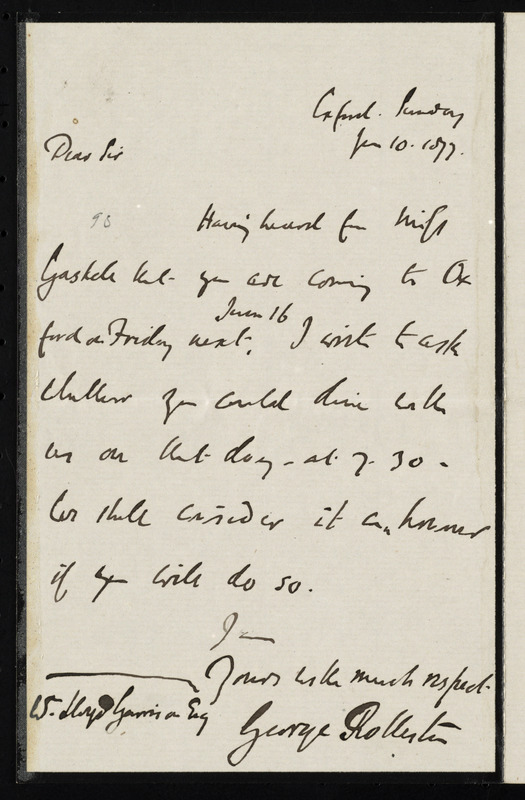 Oxford. Sunday
Jun 10. 1877.
Dear Sir
98 Having heard fm Miss
Gaskell that you are coming to Ox
June 16
ford on Friday next, I wish to ask
whether you could dine with
us on that day - at 7.30 -
We shall consider it an honour
if you will do so.
I am
Yours with much respect.
W. Lloyd Garrison Esq
George Rolleston